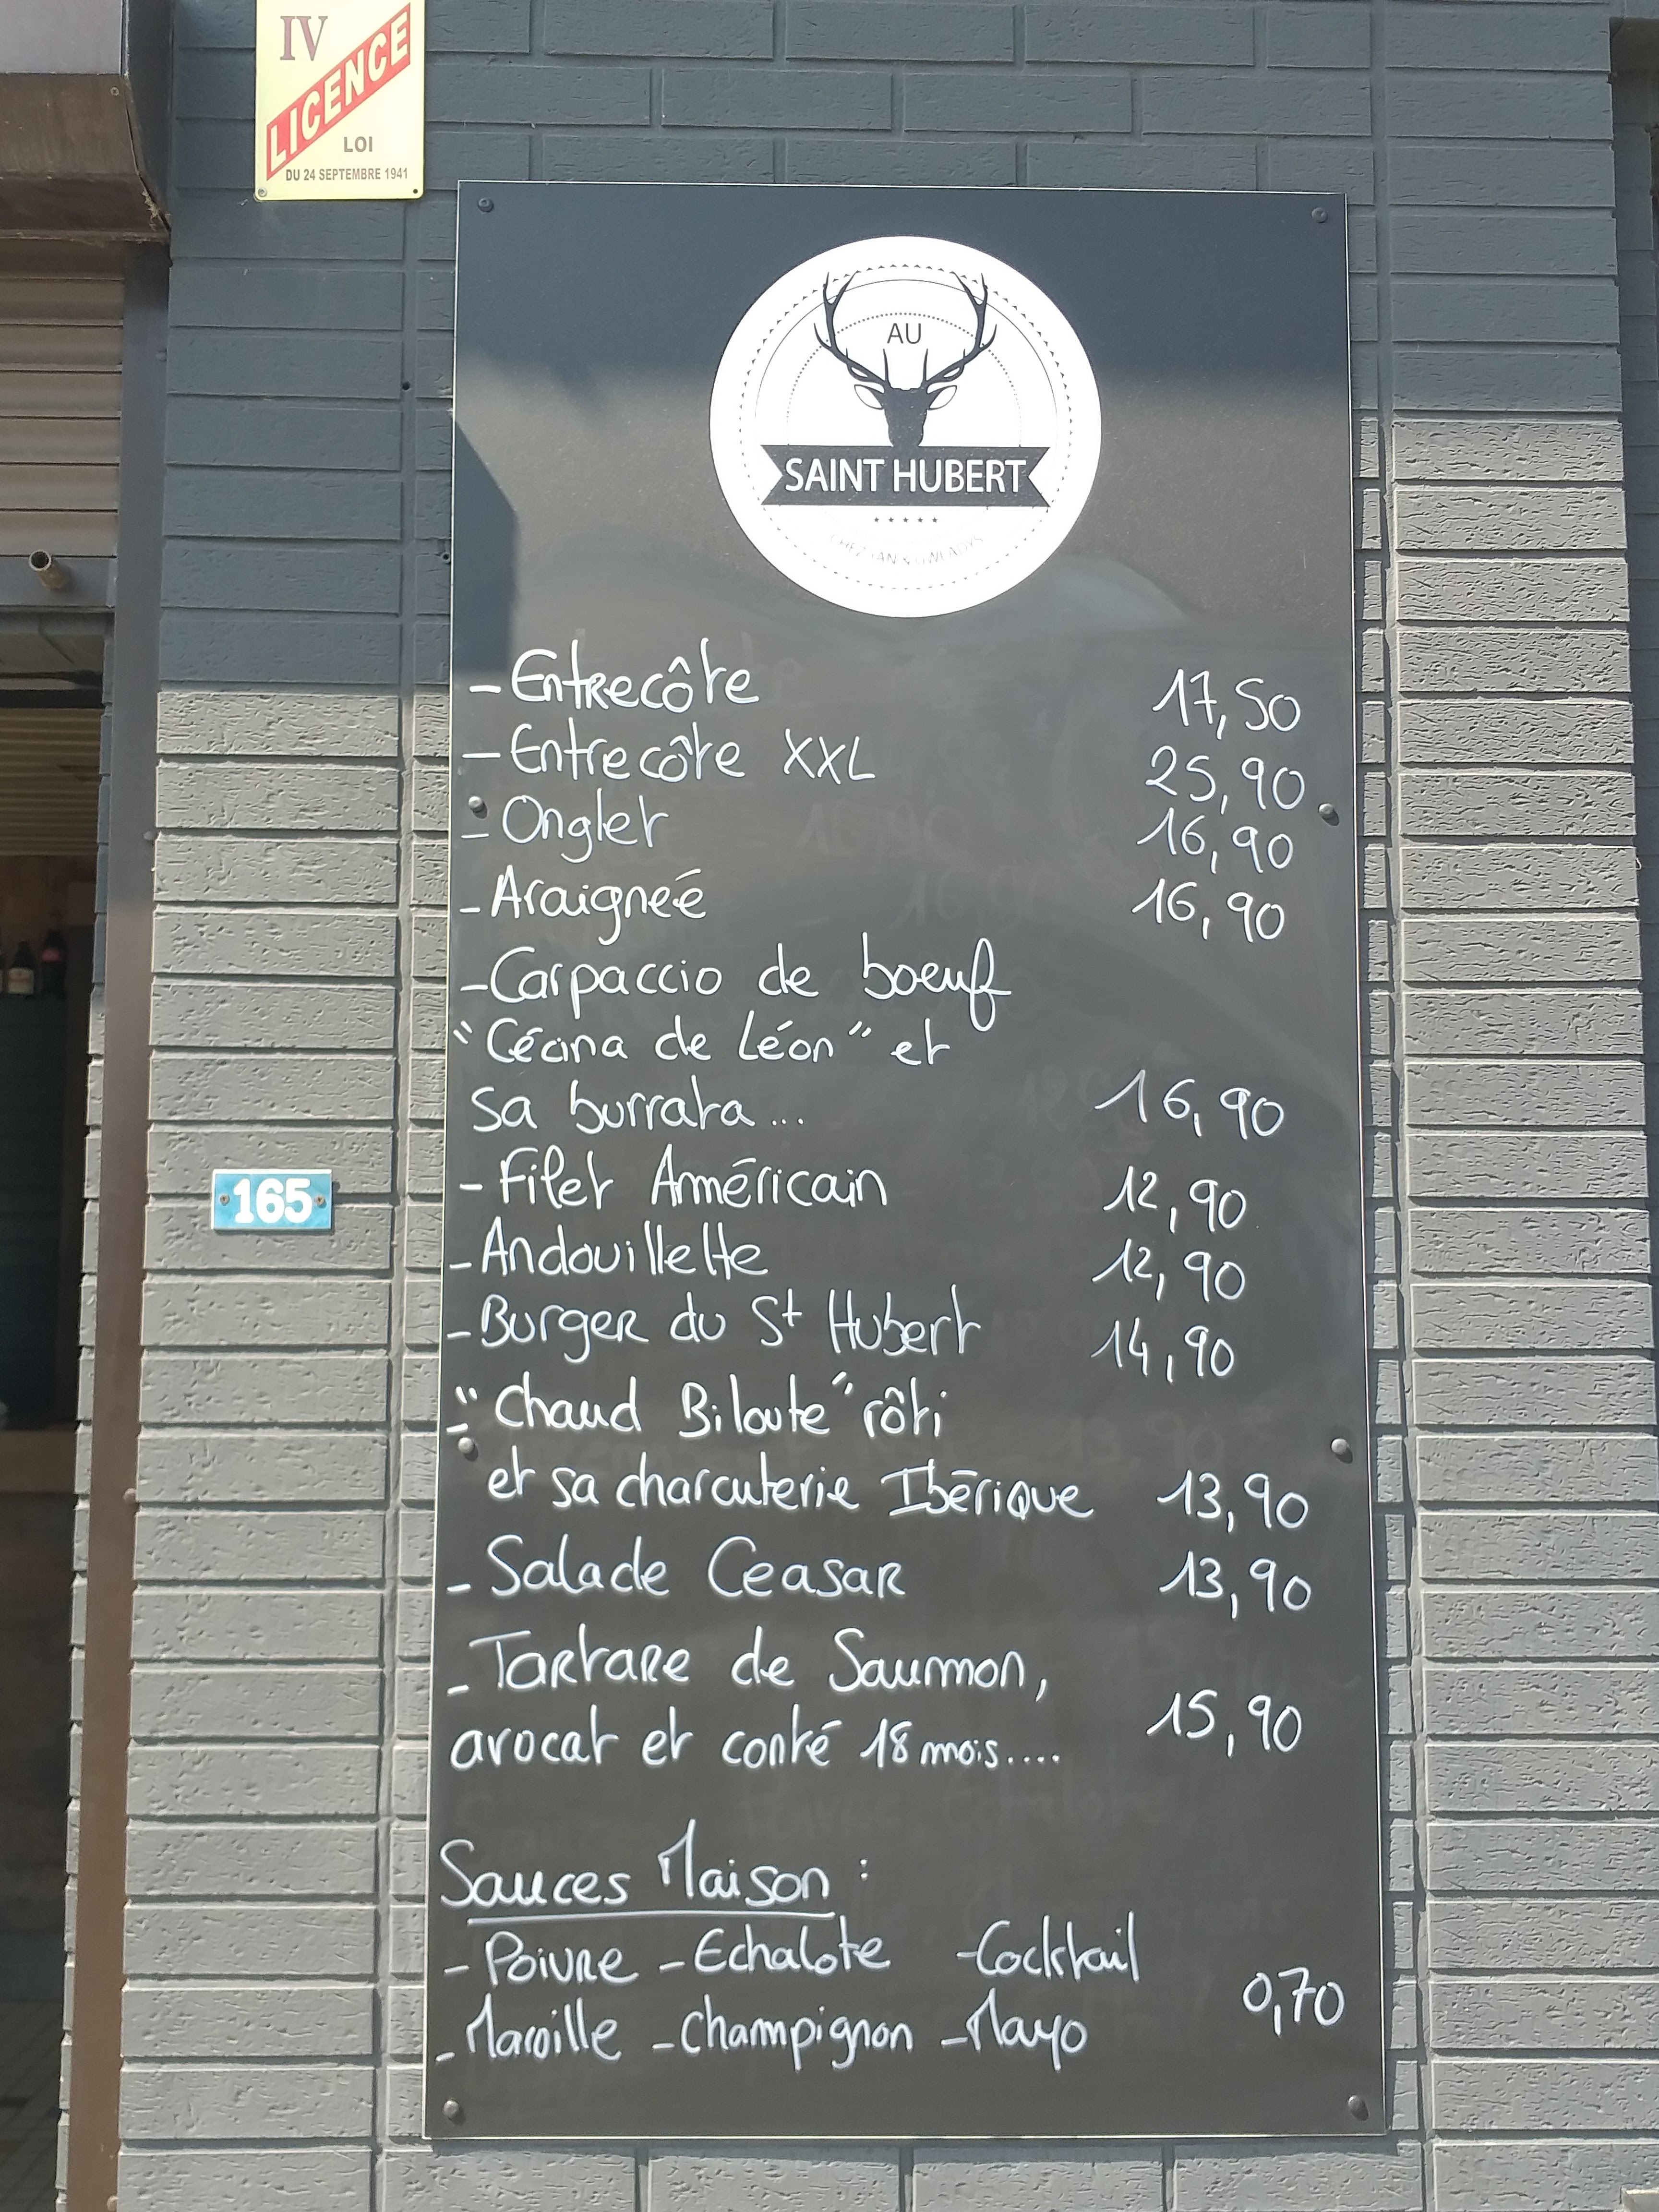 IV
LICENCE
LOI
DU 24 SEPTEMBRE 1941
AU
SAINT HUBERT
- Entrecôte 17,50
- Entrecôte XXL 25,90
- Onglet 16,90
- Araigneé 16,90
- Carpaccio de boeuf
"Cécina de Léon" et
sa burrata... 16,90
- Filet Américain 12,90
- Andouillette 12,90
- Burger du St Hubert 14,90
- "Chaud Biloute" rôti
et sa charcuterie Ibérique 13,90
- Salade Ceasar 13,90
- Tartare de Saumon,
avocat et conté 18 mois.... 15,90
165
Sauces Maison :
- Poivre - Echalote - Cocktail
0,70
- Maroille - Champignon - Mayo